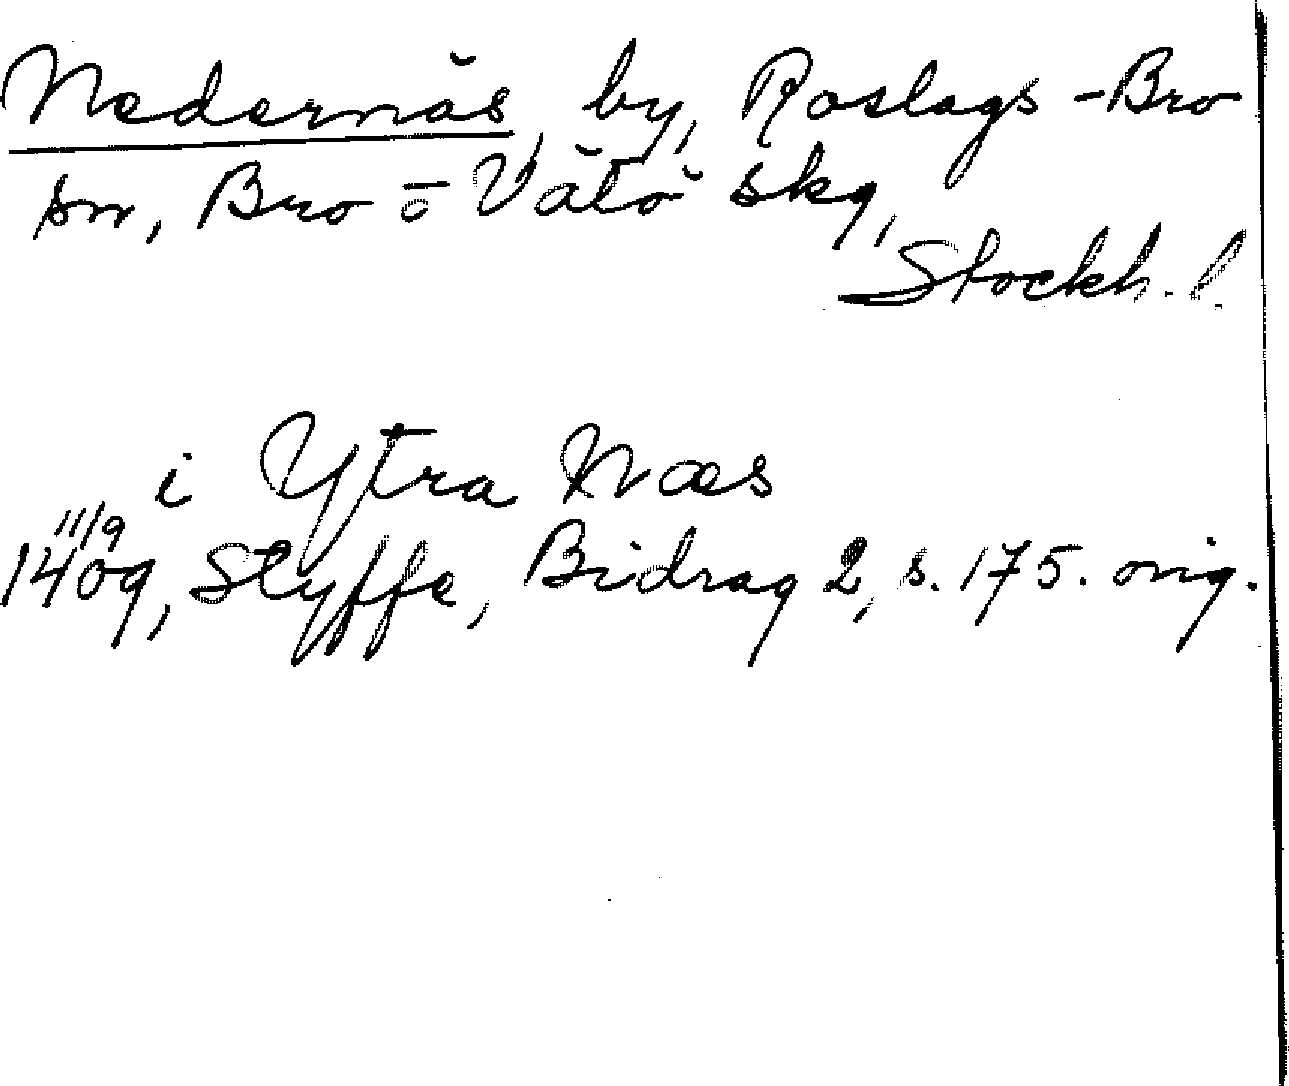 Nedernäs, by, Roslags-Bro
sn, Bro o Vätö skg,
Stockh. l.
i Ytra Næs
11/9
1409, Styffe, Bidrag 2, s. 175. orig.